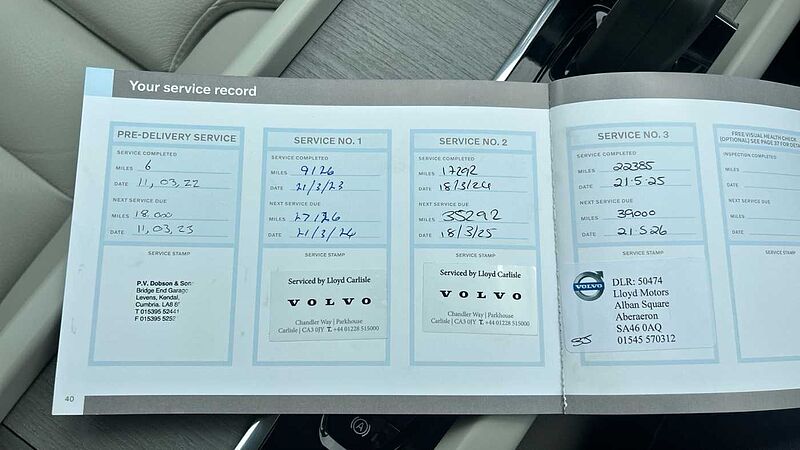 Your service record
PRE-DELIVERY SERVICE
SERVICE COMPLETED
MILES 6
DATE 11,03,22
NEXT SERVICE DUE
MILES 18.000
DATE 11,03,23
SERVICE STAMP
P.V. Dobson & Sons
Bridge End Garage
Levens, Kendal,
Cumbria. LA8 8
T 015395 52441
F 015395 5252
SERVICE NO. 1
SERVICE COMPLETED
MILES 9126
DATE 21/3/23
NEXT SERVICE DUE
MILES 27126
DATE 21/3/24
SERVICE STAMP
Serviced by Lloyd Carlisle
VOLVO
Chandler Way | Parkhouse
Carlisle | CA3 0JY T. +44 01228 515000
SERVICE NO. 2
SERVICE COMPLETED
MILES 17292
DATE 18/3/24
NEXT SERVICE DUE
MILES 35292
DATE 18/3/25
SERVICE STAMP
Serviced by Lloyd Carlisle
VOLVO
Chandler Way | Parkhouse
Carlisle | CA3 0JY T. +44 01228 515000
SERVICE NO. 3
SERVICE COMPLETED
MILES 22385
DATE 21.5.25
NEXT SERVICE DUE
MILES 39000
DATE 21.5.26
SERVICE STAMP
VOLVO
DLR: 50474
Lloyd Motors
Alban Square
Aberaeron
SA46 0AQ
01545 570312
FREE VISUAL HEALTH CHECK
(OPTIONAL) SEE PAGE 37 FOR DETA
INSPECTION COMPLETED
MILES
DATE
SERVICE STAMP
40